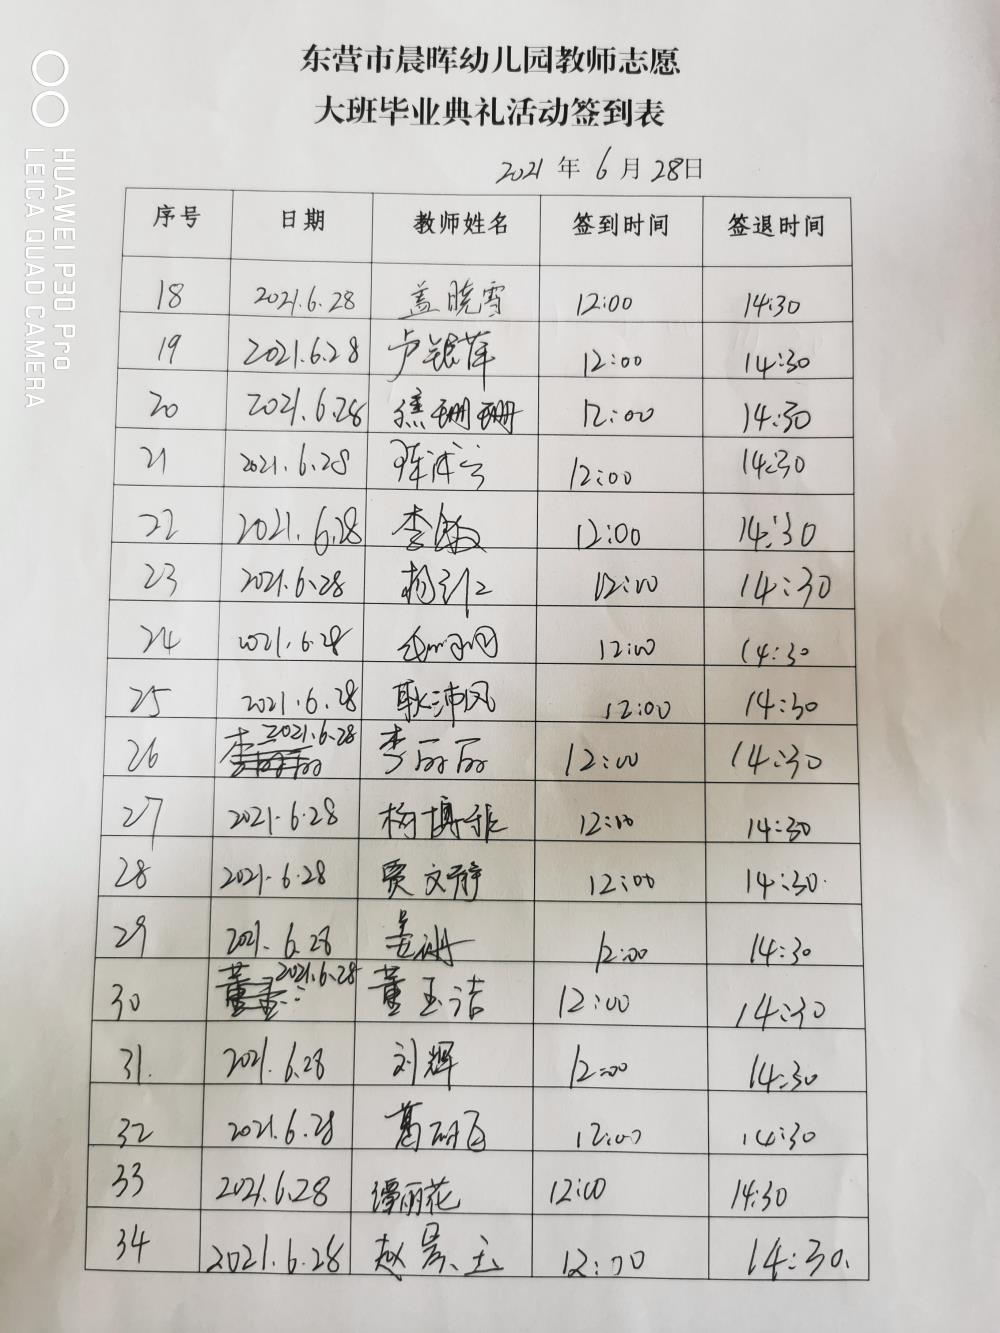 东营市晨晖幼儿园教师志愿
大班毕业典礼活动签到表
2021 年 6 月 28日
序号 日期 教师姓名 签到时间 签退时间
18 2021.6.28 盖晓雪 12:00 14:30
19 2021.6.28 卢银萍 12:00 14:30
20 2021.6.28 焦珊珊 12:00 14:30
21 2021.6.28 12:00 14:30
22 2021.6.28 李敏 12:00 14:30
23 2021.6.28 12:00 14:30
24 2021.6.28 12:00 14:30
25 2021.6.28 耿沛风 12:00 14:30
26 2021.6.28 李丽丽 12:00 14:30
27 2021.6.28 杨博雅 12:00 14:30
28 2021.6.28 贾文静 12:00 14:30.
29 2021.6.28 姜琳 12:00 14:30
30 2021.6.28 董玉洁 12:00 14:30
31. 2021.6.28 刘辉 12:00 14:30
32 2021.6.28 12:00 14:30
33 2021.6.28 谭丽花 12:00 14:30
34 2021.6.28 赵景玉 12:00 14:30.
HUAWEI P30 Pro
LEICA QUAD CAMERA